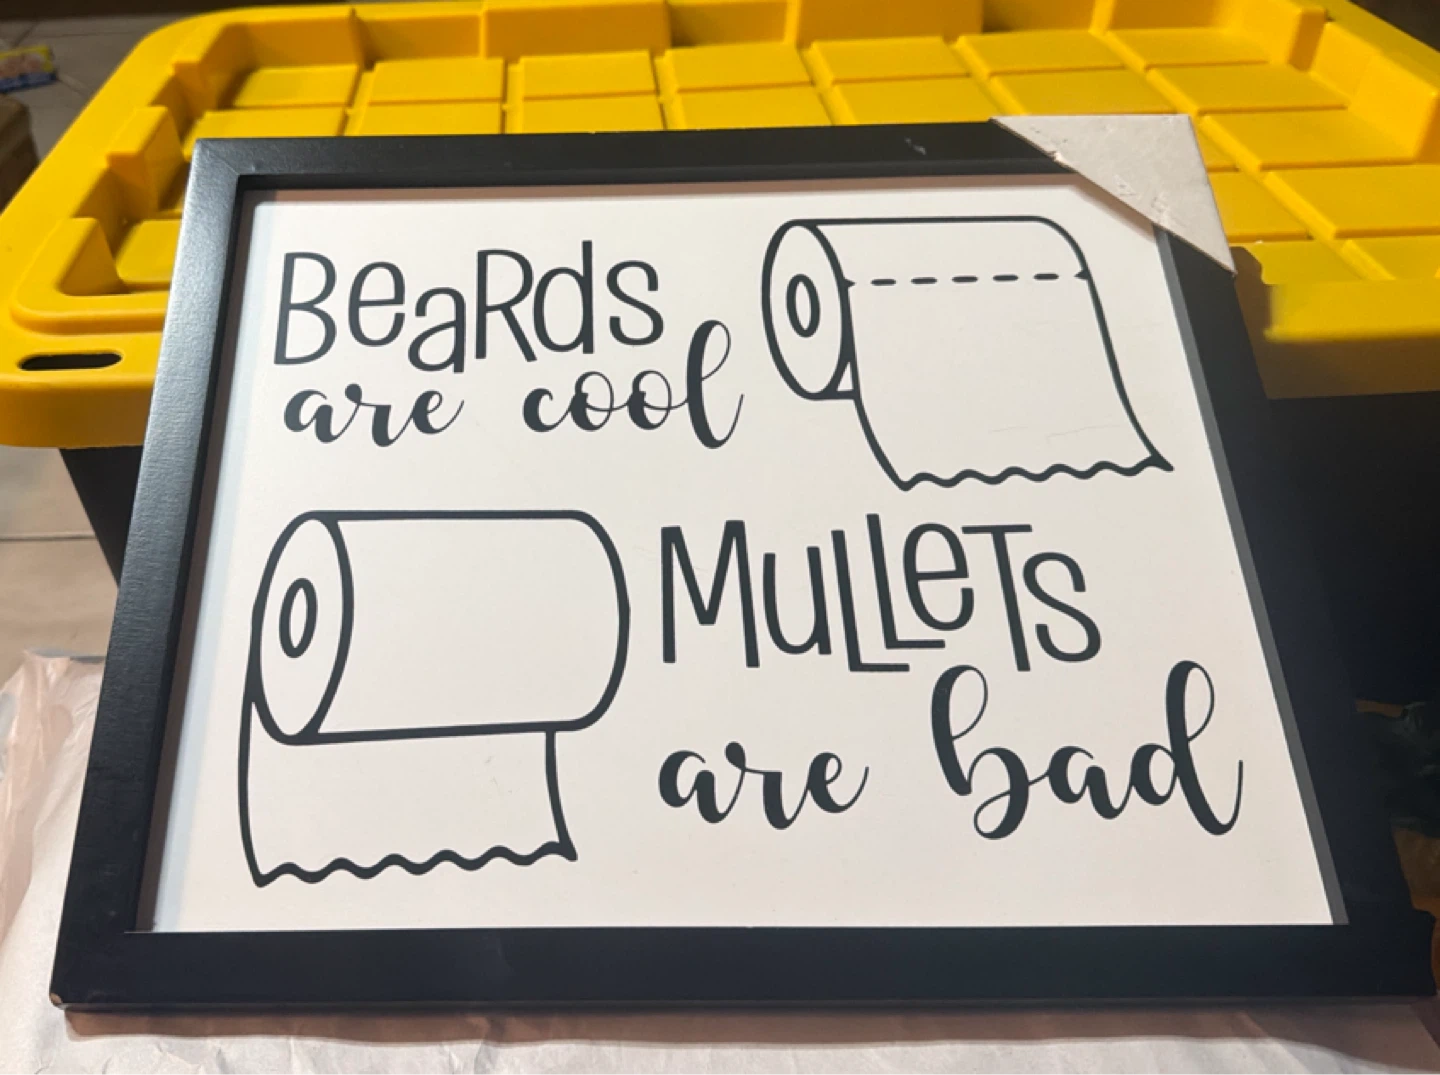 BeaRds
are cool
MuLLeTs
are bad